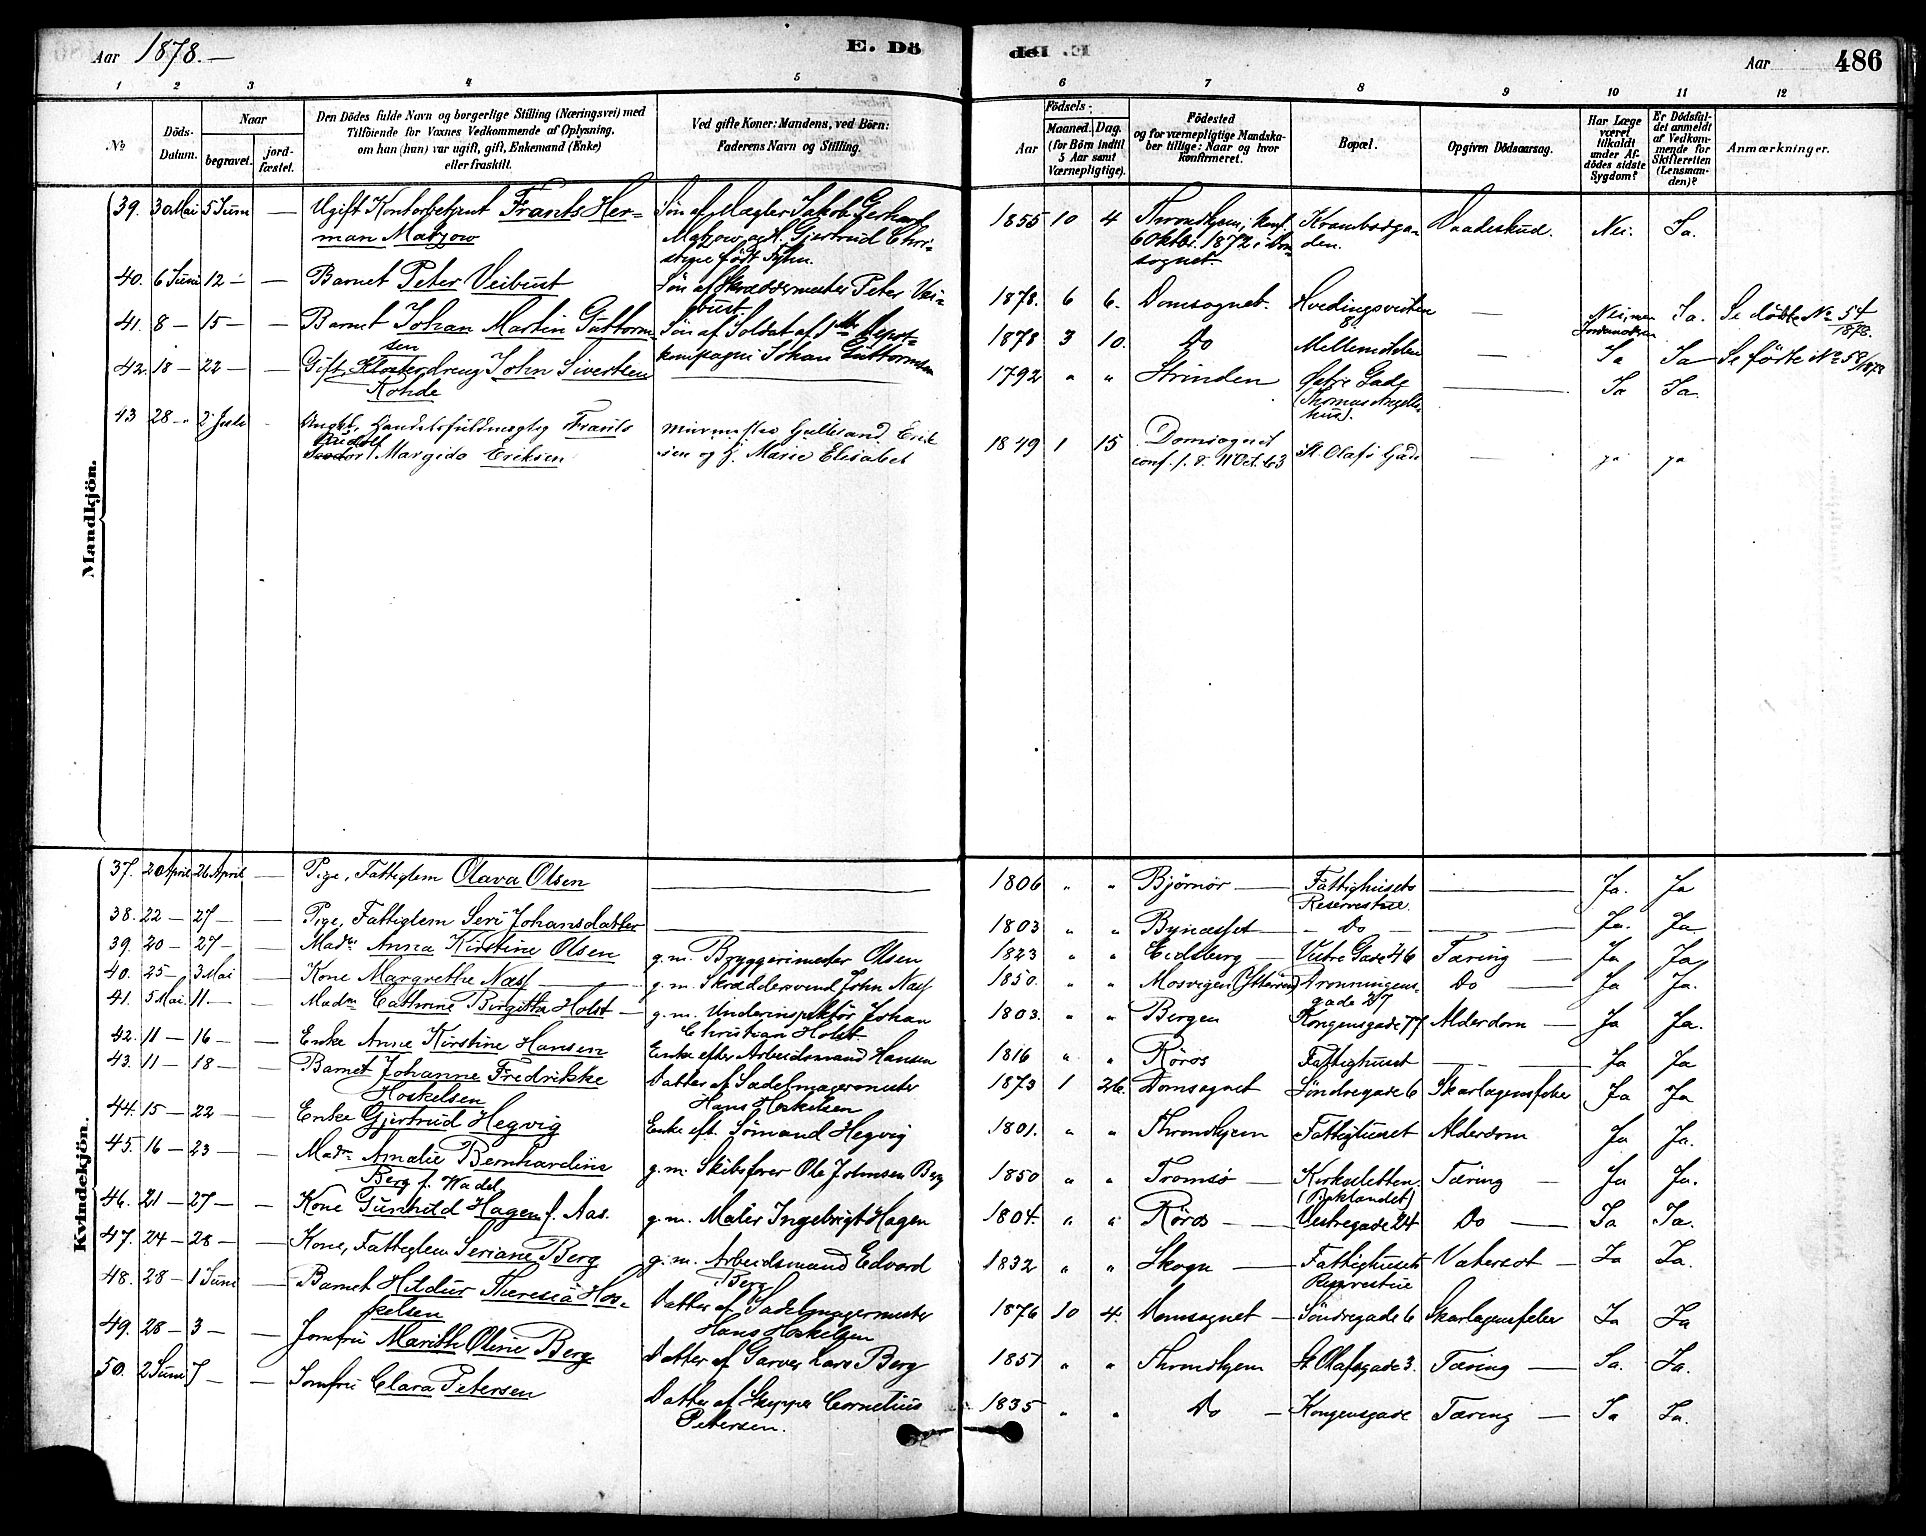 Aar 1878.— E. Dö
de). E. Aar 486
1 2 3 4 5 6 7 8 9 10 11 12
№
Döds-Datum.
Naar
begravet.
jord-fæstet.
Den Dödes fulde Navn og borgerlige Stilling (Næringsvei) med
Tilföiende for Voxnes Vedkommende af Oplysning,
om han (hun) var ugift, gift, Enkemand (Enke)
eller fraskilt.
Ved gifte Koner: Mandens, ved Börn:
Faderens Navn og Stilling.
Födsels-
Aar
Maaned. Dag.
(for Börn indtil
5 Aar samt
Værnepligtige).
Födested
og for værnepligtige Mandska-
ber tillige: Naar og hvor
konfirmeret.
Bopæl.
Opgiven Dödsaarsag.
Har Læge
været
tilkaldt
under Af-
dödes sidste
Sygdom?
Er Dödsfal-
det anmeldt
af Vedkom-
mende for
Skifteretten
(Lensman-
den)?
Anmærkninger.
Mandkjön.
39. 30 Mai 5 Juni — Ugift Kontorbetjent Frants Her- Søn af Mægler Jakob Gerhard 1855 10 4 Throndhjem, konf. Krambodga- Vaadeskud. Nei. Ja.
man Matzow Matzow og H. Gjertrud Chri- 6 Oktbr. 1872 i Dom- den.
stine født sognet.
40. 6 Juni 12 — — Barnet Peter Veibust Søn af Skræddermester Peter Vei- 1878. 6 6. Domsognet. Hvedingsveiten — Nei, men Ja. Se døbte No 54
bust. 8 Jordemoderen 1878.
41. 8 — 15 — — Barnet Johan Martin Guttorm Søn af Soldat af 1ste Depot- 1878 3 10. Do Mellemolden — Ja Ja Se førte No 58/1878
sen kompagni Johan Guttormsen
42. 18 — 22 — — Gift, Klosterdreng John Sivertsen 1792 " " Strinden Østre Gade — Ja Ja
Rohde (Thomas Angells
hus).
43 28 — 2 Juli — Ungkl. Handelsfuldmægtig Frants Murmester Gulbrand Erik 1849 1 15 Domsognet St. Olafs Gade — ja ja
Rudolf Margido Eriksen sen og H. Marie Elisabet conf. 1. S. 11 Oct. 63
Kvindekjön.
37. 20 April 26 April — Pige, Fattiglem Olava Olsen — 1806 " " Bjørnør — Fattighusets — Ja. Ja
Reservestue.
38. 22 — 27 — — Pige, Fattiglem Seri Johansdatter — 1803 " " Bynæsset — Do — Ja. Ja
39. 20 — 27 — — Madm Anna Kirstine Olsen g. m. Bryggerimester Olsen 1823 " " Eidsberg — Vestre Gade 46 Tæring — Ja Ja
40. 25 — 3 Mai — Kone Margrethe Næss g. m. Skræddersvend John Næss 1850. " " Mosvigen (Ytterøen) Dronningens- Do — Ja Ja.
gade 27
41. 5 Mai 11 — — Madm Cathrine Birgitta Holst — g. m. Underinspektør Johan 1803. " " Bergen Kongensgade 77 Alderdom — Ja Ja.
Christian Holst
42. 11 — 16 — — Enke Anne Kirstine Hansen Enke efter Arbeidsmand Hansen 1816 " " Røros Fattighuset — Ja Ja
43. 11 — 18 — — Barnet Johanne Fredrikke Datter af Sadelmagermester 1873 1 26. Domsognet Søndregade 6 Skarlagensfeber Ja Ja
Hoskelsen Hans Hoskelsen
44. 15 — 22 — — Enke Gjertrud Hegvig Enke eft. Sømand Hegvig 1801. " " Throndhjem Fattighuset Alderdom Ja Ja.
45. 16 — 23 — — Madm Amalie Bernhardine g. m. Skibsfører Ole Johnsen Berg 1850 " " Tromsø — Kirkesletten. Tæring — Ja Ja.
Berg f. Wadel (Baklandet)
46. 21 — 27 — — Kone Gunhild Hagen f. Aas. g. m. Maler Ingebrigt Hagen 1804. " " Røros — Vestregade 24 Do — Ja Ja.
47. 24 — 28 — — Kone, Fattiglem Seriane Berg g. m. Arbeidsmand Edvard 1832 " " Skogn — Fattighusets Vatersot — Ja Ja.
Berg Reservestue
48. 28 — 1 Juni — Barnet Hildur Theresia Hos- Datter af Sadelmagermester 1876 10 4. Domsognet — Søndregade 6 Skarlagensfeber Ja Ja
kelsen Hans Hoskelsen
49. 28 — 3 — — Jomfru Marith Oline Berg Datter af Garver Lars Berg 1851 " " Throndhjem St Olafsgade 3. Tæring — Ja. Ja.
50. 2 Juni 7 — — Jomfru Clara Petersen Datter af Skipper Cornelius 1835 " " Do — Kongensgade Tæring — Ja Ja.
Petersen.